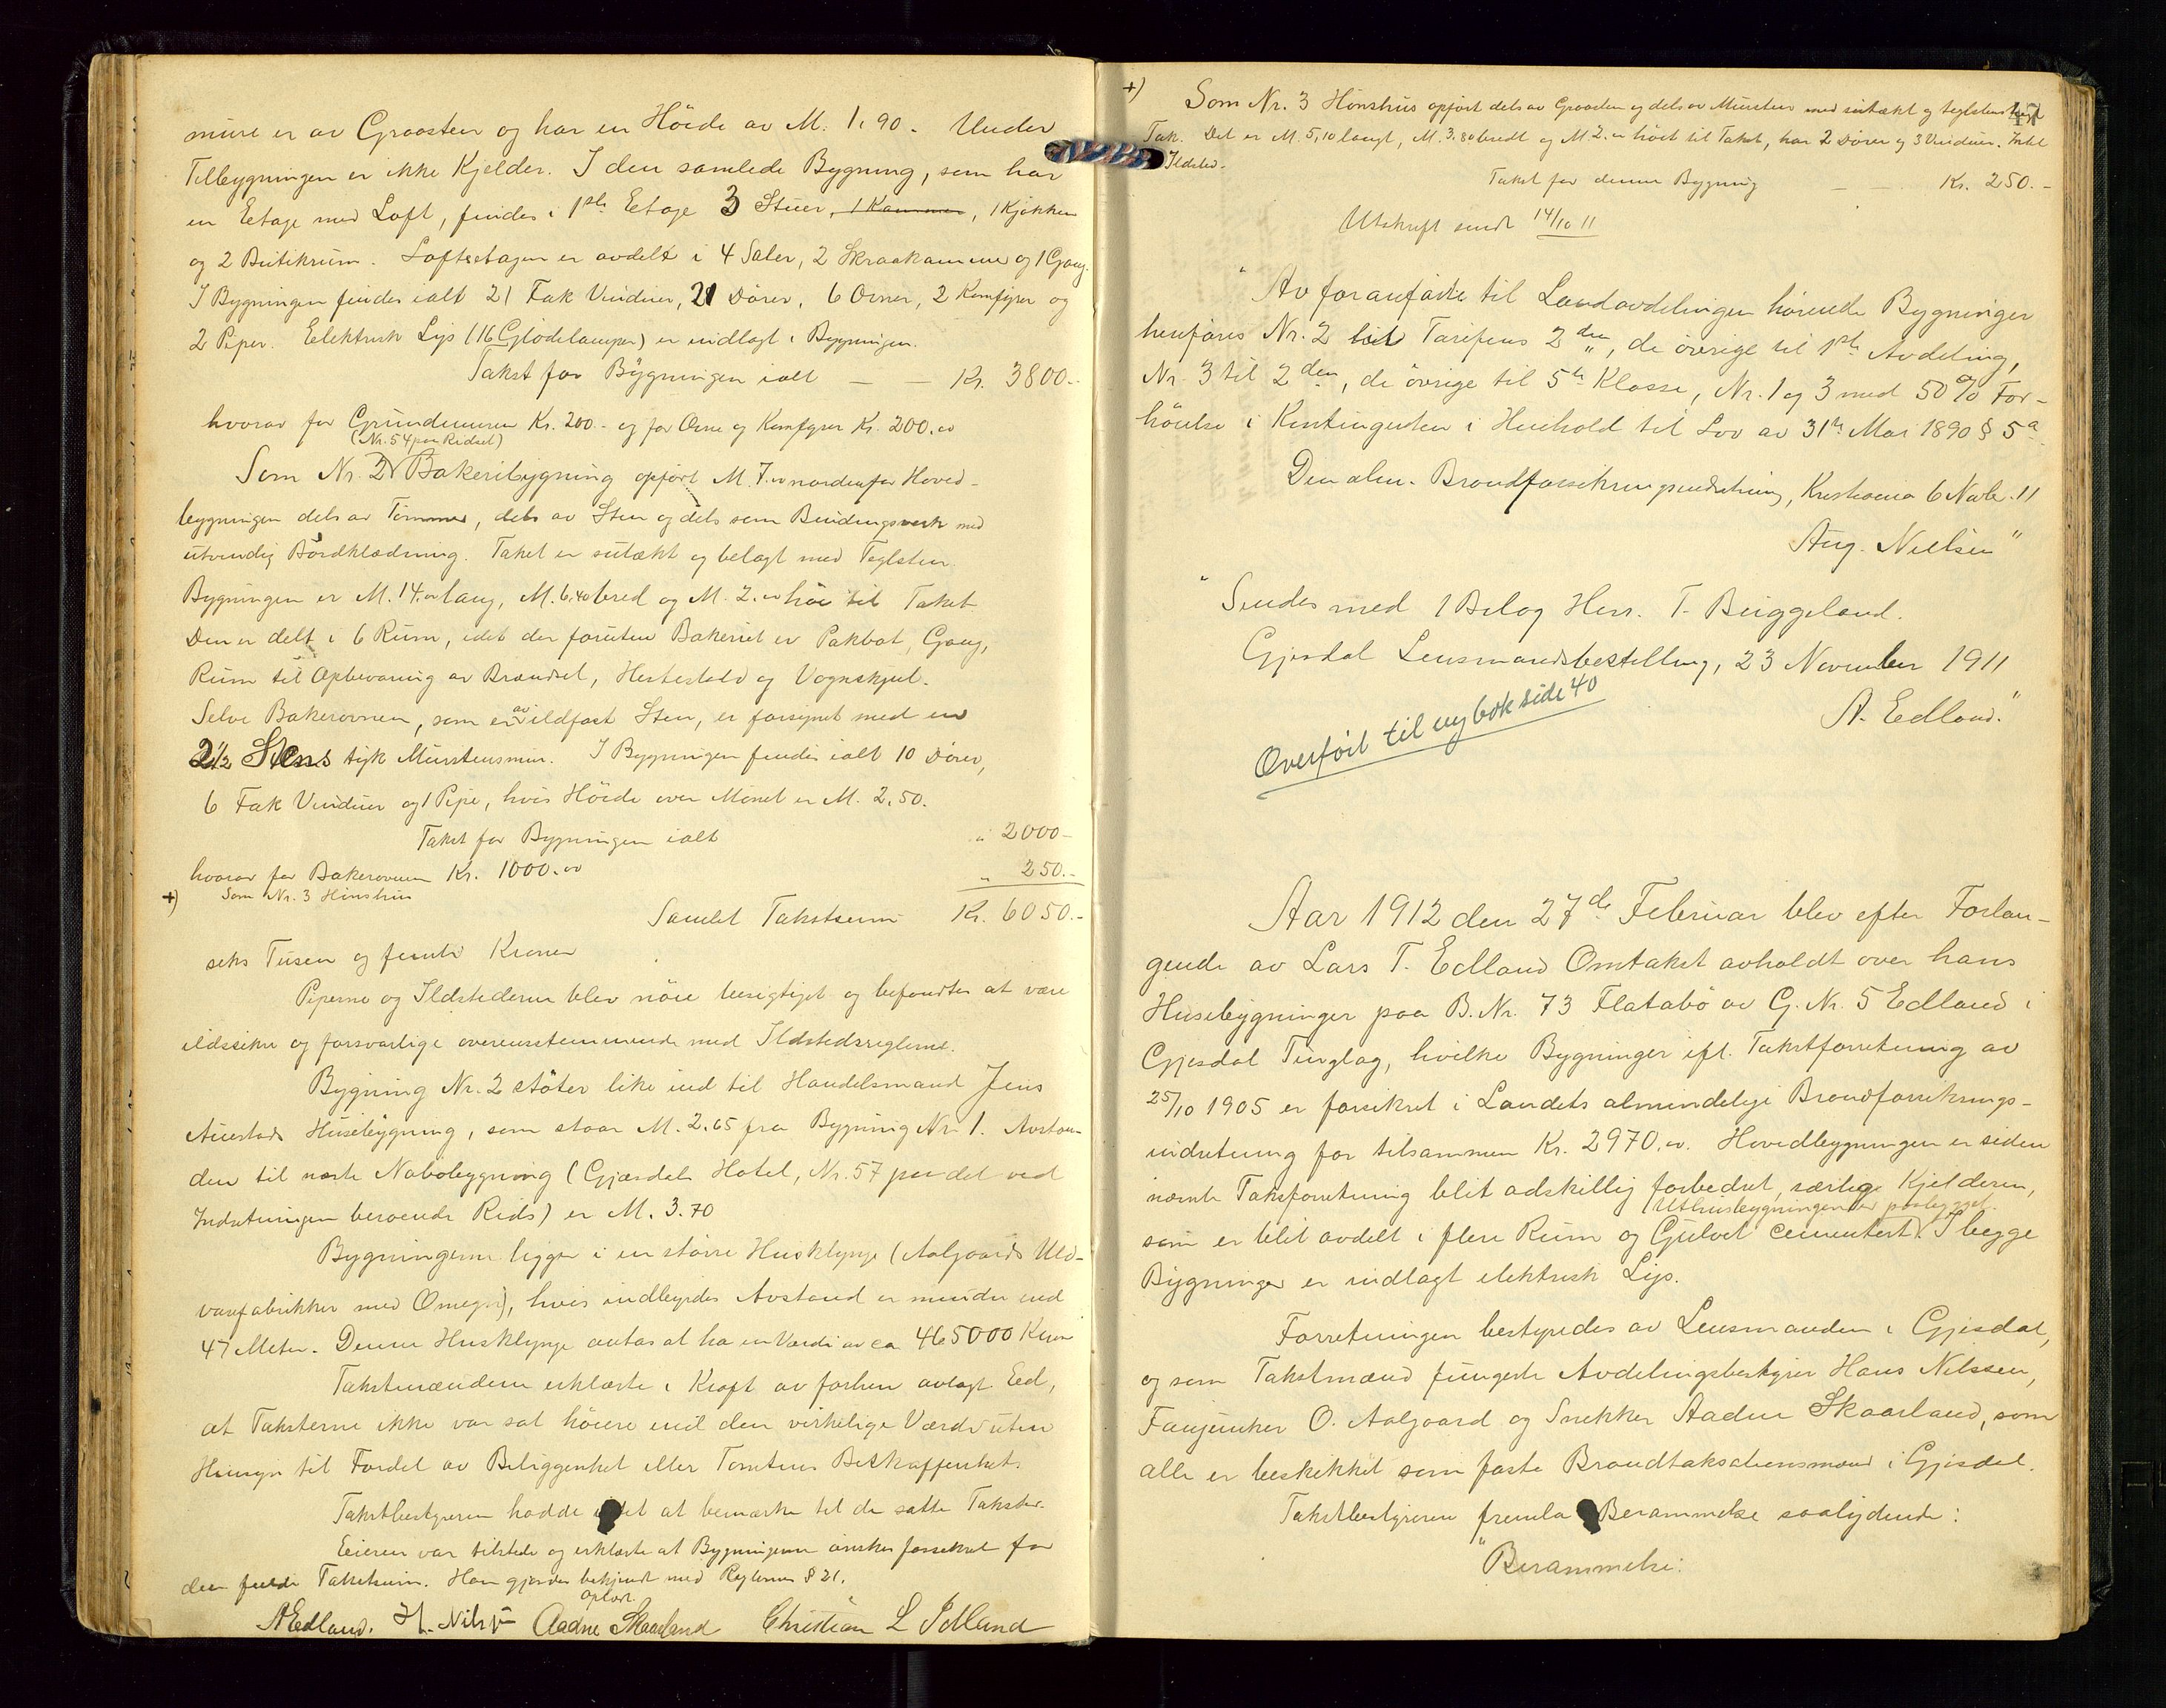 mure er av Graasten og har en Höide av M. 1.90. Under
Tilbygningen er ikke Kjelder. I den samlede Bygning, som har
en Etage med Loft, findes i 1ste Etage 3 Stuer, 1 Kammer, 1 Kjökken
og 2 Butikrum. Loftsetagen er avdelt i 4 Saler, 2 Skraakammer og 1 Gang.
I Bygningen findes ialt 21 Fak Vinduer, 21 Dörer, 6 Ovner, 2 Komfyrer og
2 Piper. Elektrisk Lys (16 Glödelamper) er indlagt i Bygningen.
Takst for Bygningen ialt — — Kr. 3800.-
hvorav for Grundmuren Kr. 200.- og for Ovne og Komfyrer Kr. 200.00
(Nr. 54 paa Ridset)
Som Nr. 2 Bakeribygning opfört M. 7.00 nordenfor Hoved-
bygningen dels av Tömmer, dels av Sten og dels som Bindingsverk med
utvendig Bordklædning. Taket er sutækt og belagt med Teglsten.
Bygningen er M. 14.00 lang, M. 6.40 bred og M. 2.00 höi til Taket.
Den er delt i 6 Rum, idet der foruten Bakeriet er Pakbod, Gang,
Rum til Opbevaring av Brændsel, Hestestald og Vognskjul.
Selve Bakerovnen, som er av ildfast Sten, er forsynet med en
2½ Stens tyk Murstensmur. I Bygningen findes ialt 10 Dörer,
6 Fak Vinduer og 1 Pipe, hvis Höide over Mönet er M. 2.50.
Takst for Bygningen ialt " 2000-
hvorav for Bakerovnen Kr. 1000.00 " 250.-
+) Som Nr. 3 Hönshus
Samlet Takstsum Kr. 6050.-
seks Tusen og femti Kroner
Piperne og Ildstederne blev nöie besigtiget og befandtes at være
ildssikre og forsvarlige overensstemmende med Ildstedsreglerne.
Bygning Nr. 2 stöter like ind til Handelsmand Jens
Auestads Husebygning, som staar M. 2.65 fra Bygning Nr. 1. Avstan-
den til næste Nabobygning (Gjesdals Hotel, Nr. 57 paa det ved
Indretningen beroende Rids) er M. 3.70
Bygningerne ligger i en större Husklynge (Aalgaards Uld-
varefabrikker med Omegn), hvis indbyrdes Avstand er mindre end
47 Meter. Denne Husklynge antas at ha en Værdi av ca 465000 Kron
Takstmændene erklærte i Kraft av forhen avlagt Eed,
at Taksterne ikke var sat höiere end den virkelige Værdi uten
Hensyn til Fordel av Beliggenhet eller Tomtens Beskaffenhet.
Takstbestyreren hadde intet at bemærke til de satte Takster.
Eieren var tilstede og erklærte at Bygningerne önskes forsikret for
den fulde Takstsum. Han gjordes bekjendt med Reglernes § 21.
Oplæst.
A Edland. H. Nilsen Aadne Skaarland Christian L Idland
+) Som Nr. 3 Hönshus opfört dels av Graasten og dels av Mursten med sutækt og teglstens lagt
47
Tak. Det er M. 5,10 langt, M. 3.80 bredt og M. 2.00 höit til Taket, har 2 Dörer og 3 Vinduer. Intet
Ildsted.
Takst for denne Bygning — — Kr. 250.-
Utskrift sendt 14/10 11
"Av foranförte til Landavdelingen hörende Bygninger
henföres Nr. 2 til Tarifens 2den, de övrige til 1ste Avdeling,
Nr. 3 til 2den, de övrige til 5te Klasse, Nr. 1 og 3 med 50% For-
höielse i Kontingenten i Henhold til Lov av 31te Mai 1890 § 5a.
Den alm. Brandforsikringsindretning, Kristiania 6 Novbr. 11
Aug. Nielsen"
"Sendes med 1 Bilag Herr. T. Bryggeland.
Gjesdal Lensmandsbestilling, 23 November 1911
A. Edland."
Overfört til ny bok side 40
Aar 1912 den 27de Februar blev efter Forlan-
gende av Lars T. Edland Omtakst avholdt over hans
Husebygninger paa B. Nr. 73 Flatabö av G. Nr. 5 Edland i
Gjesdal Tinglag, hvilke Bygninger ifl. Takstforretning av
25/10 1905 er forsikret i Landets almindelige Brandforsikrings-
indretning for tilsammen Kr. 2970.00. Hovedbygningen er siden
nævnte Taksforretning blit adskillig forbedret, særlig Kjelderen,
Uthusbygningen er paabygget.
som er blit avdelt i flere Rum og Gulvet cementert. I begge
Bygninger er indlagt elektrisk Lys.
Forretningen bestyredes av Lensmanden i Gjesdal,
og som Takstmænd fungerte Avdelingsbestyrer Hans Nilssen,
Fanejunker O. Aalgaard og Snekker Aadne Skaarland, som
alle er beskikket som faste Brandtaksationsmænd i Gjesdal.
Takstbestyreren fremla Berammelse saalydende:
"Berammelse: